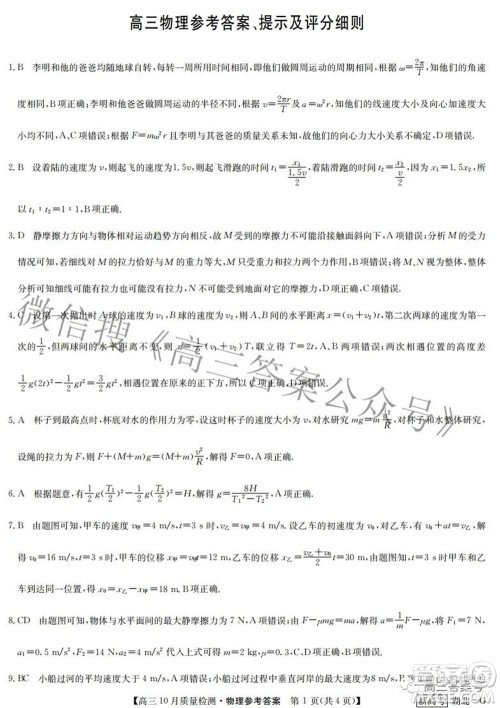 高三物理参考答案、提示及评分细则
1. B 李明和他的爸爸均随地球自转,每转一周所用时间相同,即他们做圆周运动的周期相同,根据ω=2π/T可知,他们的角速
度相同,B项正确;李明和他的爸爸做圆周运动的半径不同,根据v=2πr/T及a=ω²r,他们的线速度大小及向心加速度大
小均不同,A、C项错误;根据F=mω²r且李明与其爸爸的质量关系未知,故他们的向心力大小关系不确定,D项错误.
2. B 设着陆的速度为v,则起飞的速度为1.5v,则起飞滑跑的时间t₁=x₁/(1.5v/2),着陆滑跑的时间t₂=x₂/(v/2),因为x₁=1.5x₂,所
以t₁∶t₂=1∶1,B项正确.
3. D 静摩擦力方向与物体相对运动趋势方向相反,故M受到的摩擦力不可能沿斜面向下,A项错误;分析M的受力
情况可知,若细线对M的拉力恰好与M的重力等大,M只受两个力作用,B项错误;将M、N视为整体,整体
分析可知细线可能有拉力也可能没有拉力,N不可能受到地面对它的摩擦力,C项错误,D项正确.
4. C 设第一次抛出时A球的速度为v₁,B球的速度为v₂,则A、B间的水平距离x=(v₁+v₂)t,第二次两球的速度为第一次
的1/2,但两球间的水平距离不变,则x=1/2(v₁+v₂)T,联立得T=2t,A、B两项错误;两次相遇位置的高度差
1/2g(2t)²−1/2gt²=3/2gt²,相遇位置在原来的正下方,所以C项正确,D项错误.
5. A 杯子到最高点时,杯底对水的作用为零,设这时杯子的速度大小为v,对水研究mg=mv²/R,对杯子和水整体研究,
设绳的拉力为F,则F+(M+m)g=(M+m)v²/R,解得F=0,A项正确.
6. A 根据题意,有1/2g(T₁/2)²−1/2g(T₂/2)²=H,解得g=8H/(T₁²−T₂²),A项正确.
7. B 由题图可知,甲车的速度为v甲=4 m/s,t=3 s时,v乙=v甲=4 m/s.设乙车的初速度为v₀,对乙车,有
得v₀=16 m/s,t=3 s时,甲车的位移x甲=v甲t=12 m,乙车的位移x乙=(v乙+v₀)/2 t=30 m,由题图知,t=3 s时甲车和乙
车到达同一位置,得x₀=x乙−x甲=18 m,B项正确.
8. CD 由题图可知,物体与水平面间的最大静摩擦力为7 N,A项错误;由F−μmg=ma,解得a=1/m F−μg,将F₁=7 N,
a₁=0.5 m/s²,F₂=14 N,a₂=4 m/s²代入上式可得m=2 kg,μ=0.3,C、D项正确,B项错误.
9. BC 小船过河的平均速度大于4 m/s,A项错误;小船过河的速度方向始终与河岸垂直,
★【高三10月质量检测·物理参考答案 第1页(共4页)】★
微信搜《高三答案公众号》